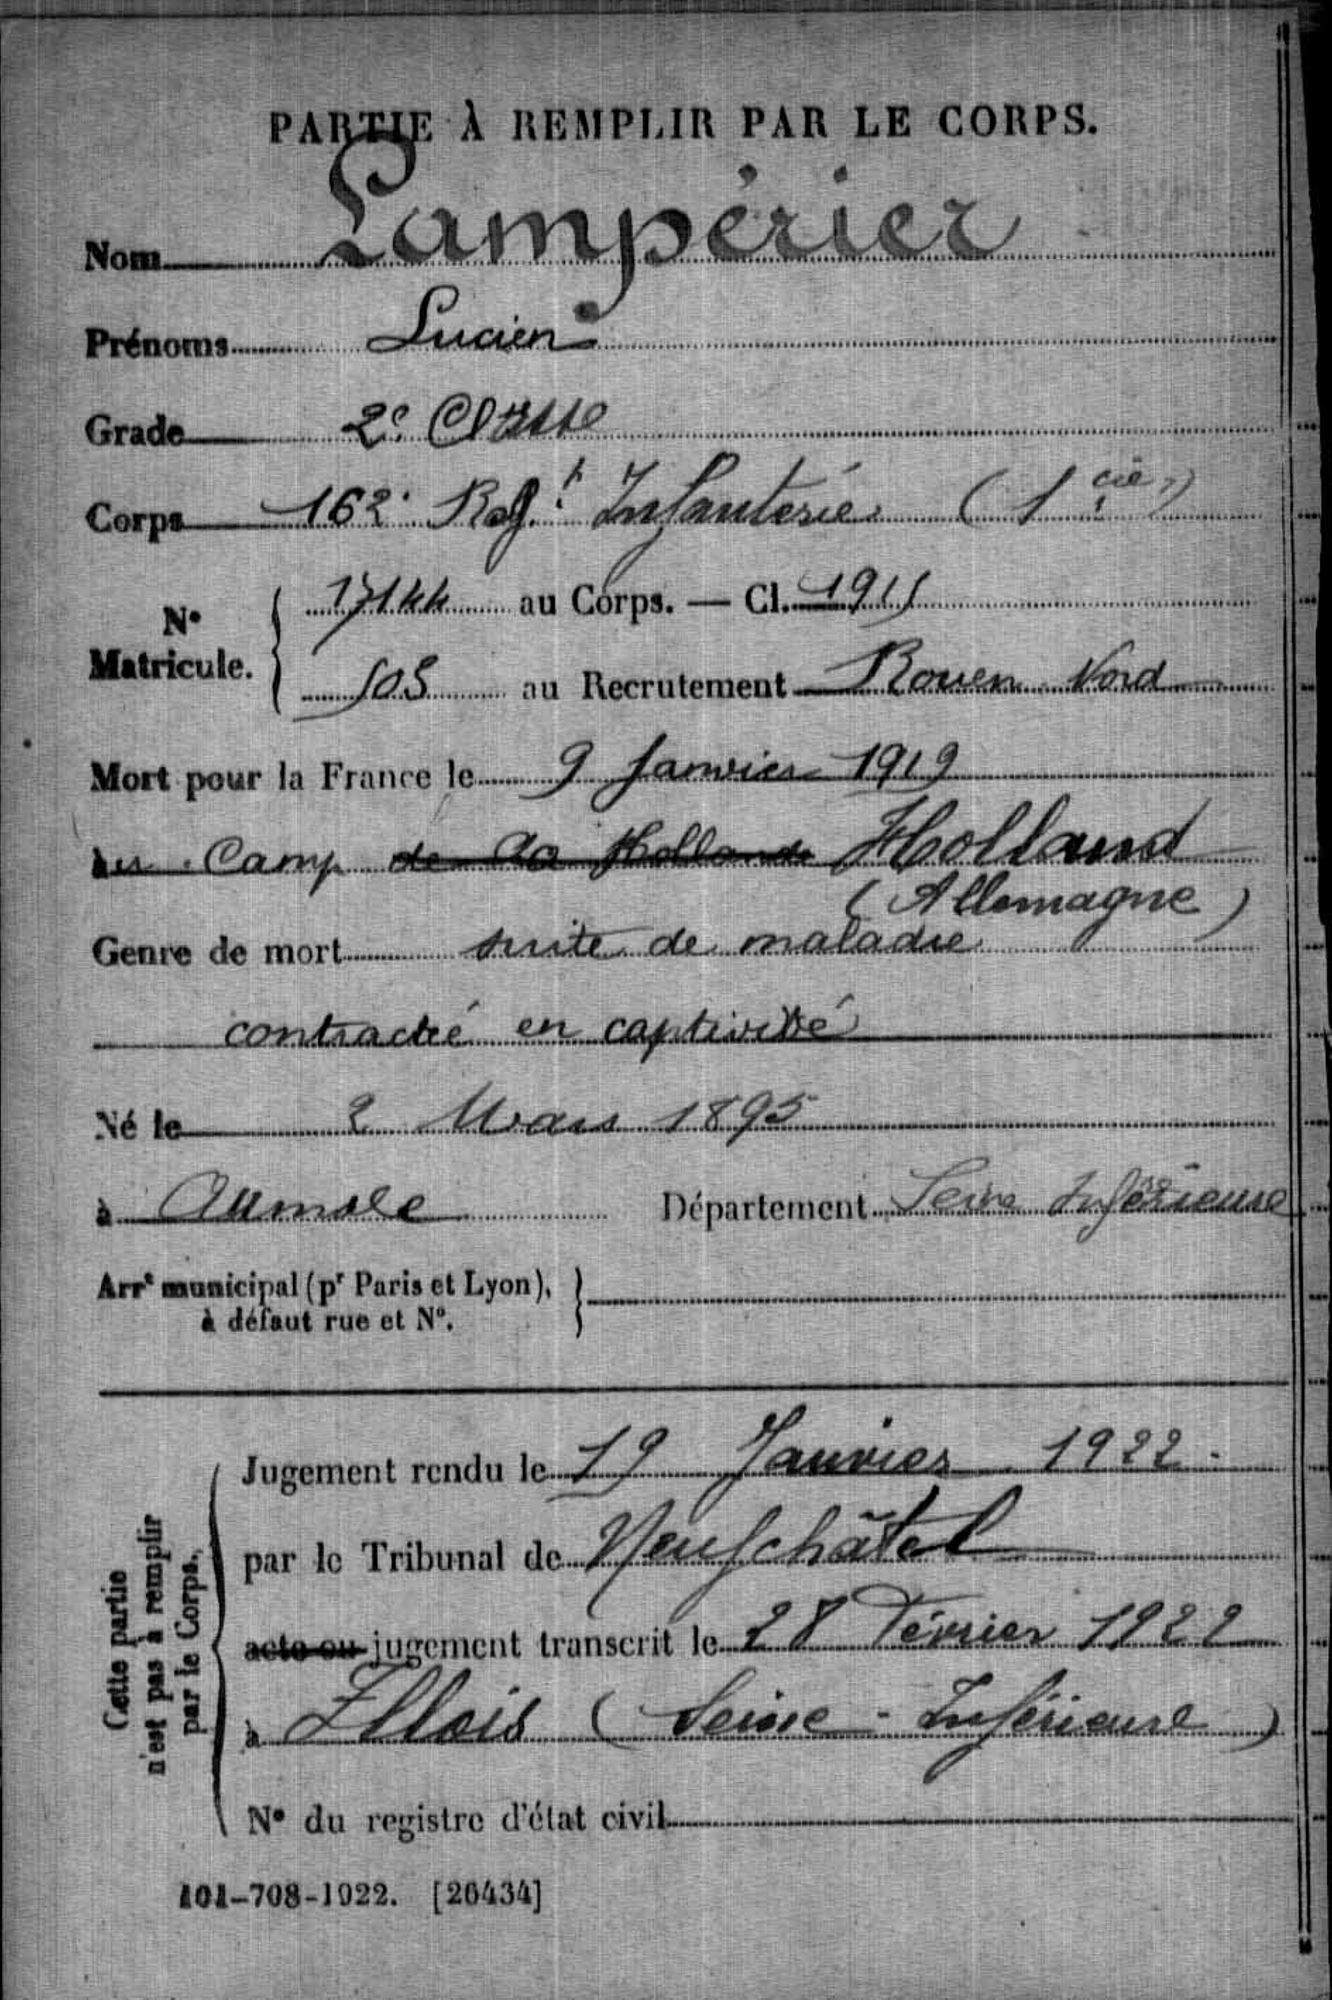 PARTIE À REMPLIR PAR LE CORPS.
Nom Lampérier
Prénoms Lucien
Grade 2e Classe
Corps 162e Reg.t Infanterie (1 cie)
N° Matricule. 17144 au Corps. — Cl. 1915
505 au Recrutement Rouen Nord
Mort pour la France le 9 Janvier 1919
Camp de la Hollande Holland
(Allemagne)
Genre de mort suite de maladie
contractée en captivité
Né le 2 Mars 1895
à Aumale Département Seine Inférieure
Arrt municipal (pr Paris et Lyon),
à défaut rue et N°.
Cette partie
n'est pas à remplir
par le Corps.
Jugement rendu le 19 Janvier 1922.
par le Tribunal de Neufchâtel
acte ou jugement transcrit le 28 Février 1922
à Illois (Seine-Inférieure)
N° du registre d'état civil
101-708-1922. [26434]